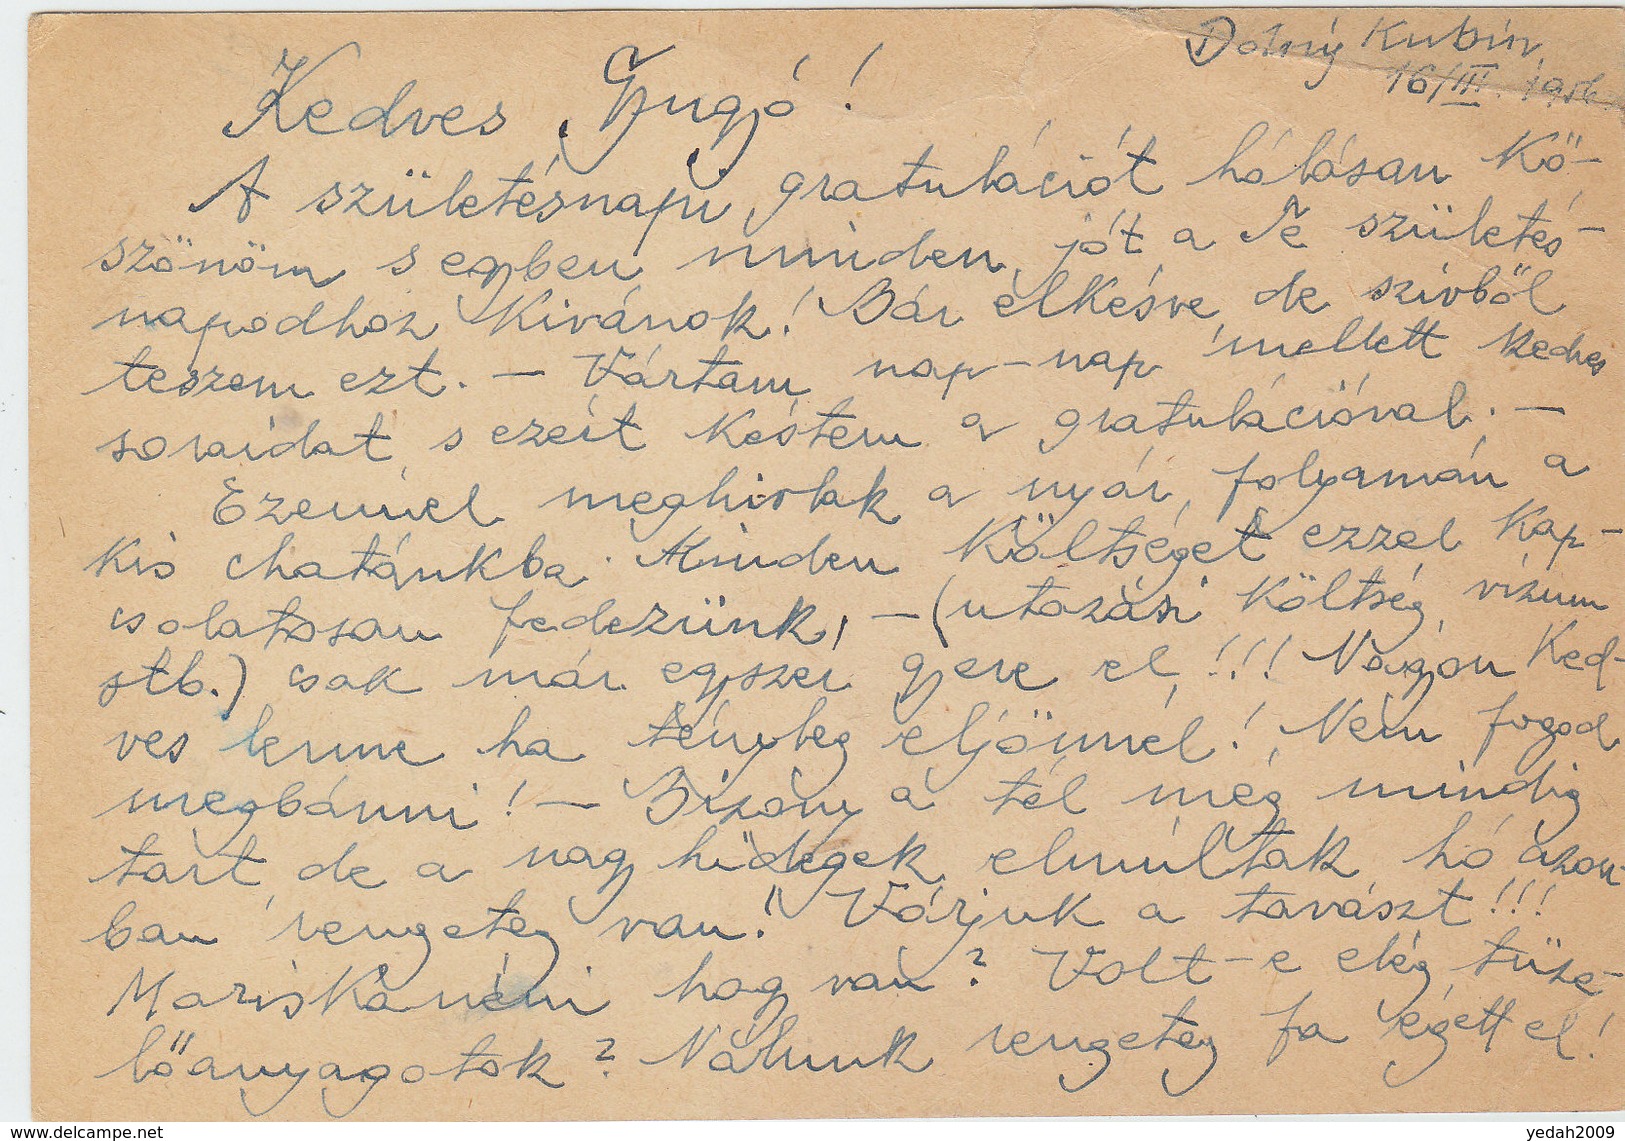 Dolný Kubín,
16/III. 1956.
Kedves Gyugyó!
A születésnapi gratulációt hálásan kö-
szönöm s egyben minden jót a Te születés-
napodhoz kivánok! Bár elkésve, de szivből
teszem ezt. – Vártam nap-nap mellett kedves
soraidat, s ezért késtem a gratulációval. –
Ezennel meghivlak a nyár folyamán a
kis chatánkba. Minden költséget ezzel kap-
csolatosan fedezünk, – (utazási költség, vizum
stb.) csak már egyszer gyere el!!! Nagyon ked-
ves lenne ha tényleg eljönnél! Nem fogod
megbánni! – Bizony a tél még mindig
tart, de a nagy hidegek elmúltak, hó azon-
ban rengeteg van! Várjuk a tavaszt!!!
Mariska néni hogy van? Volt-e elég tüze-
lőanyagotok? Nálunk rengeteg fa égett el!
www.delcampe.net
yedah2009